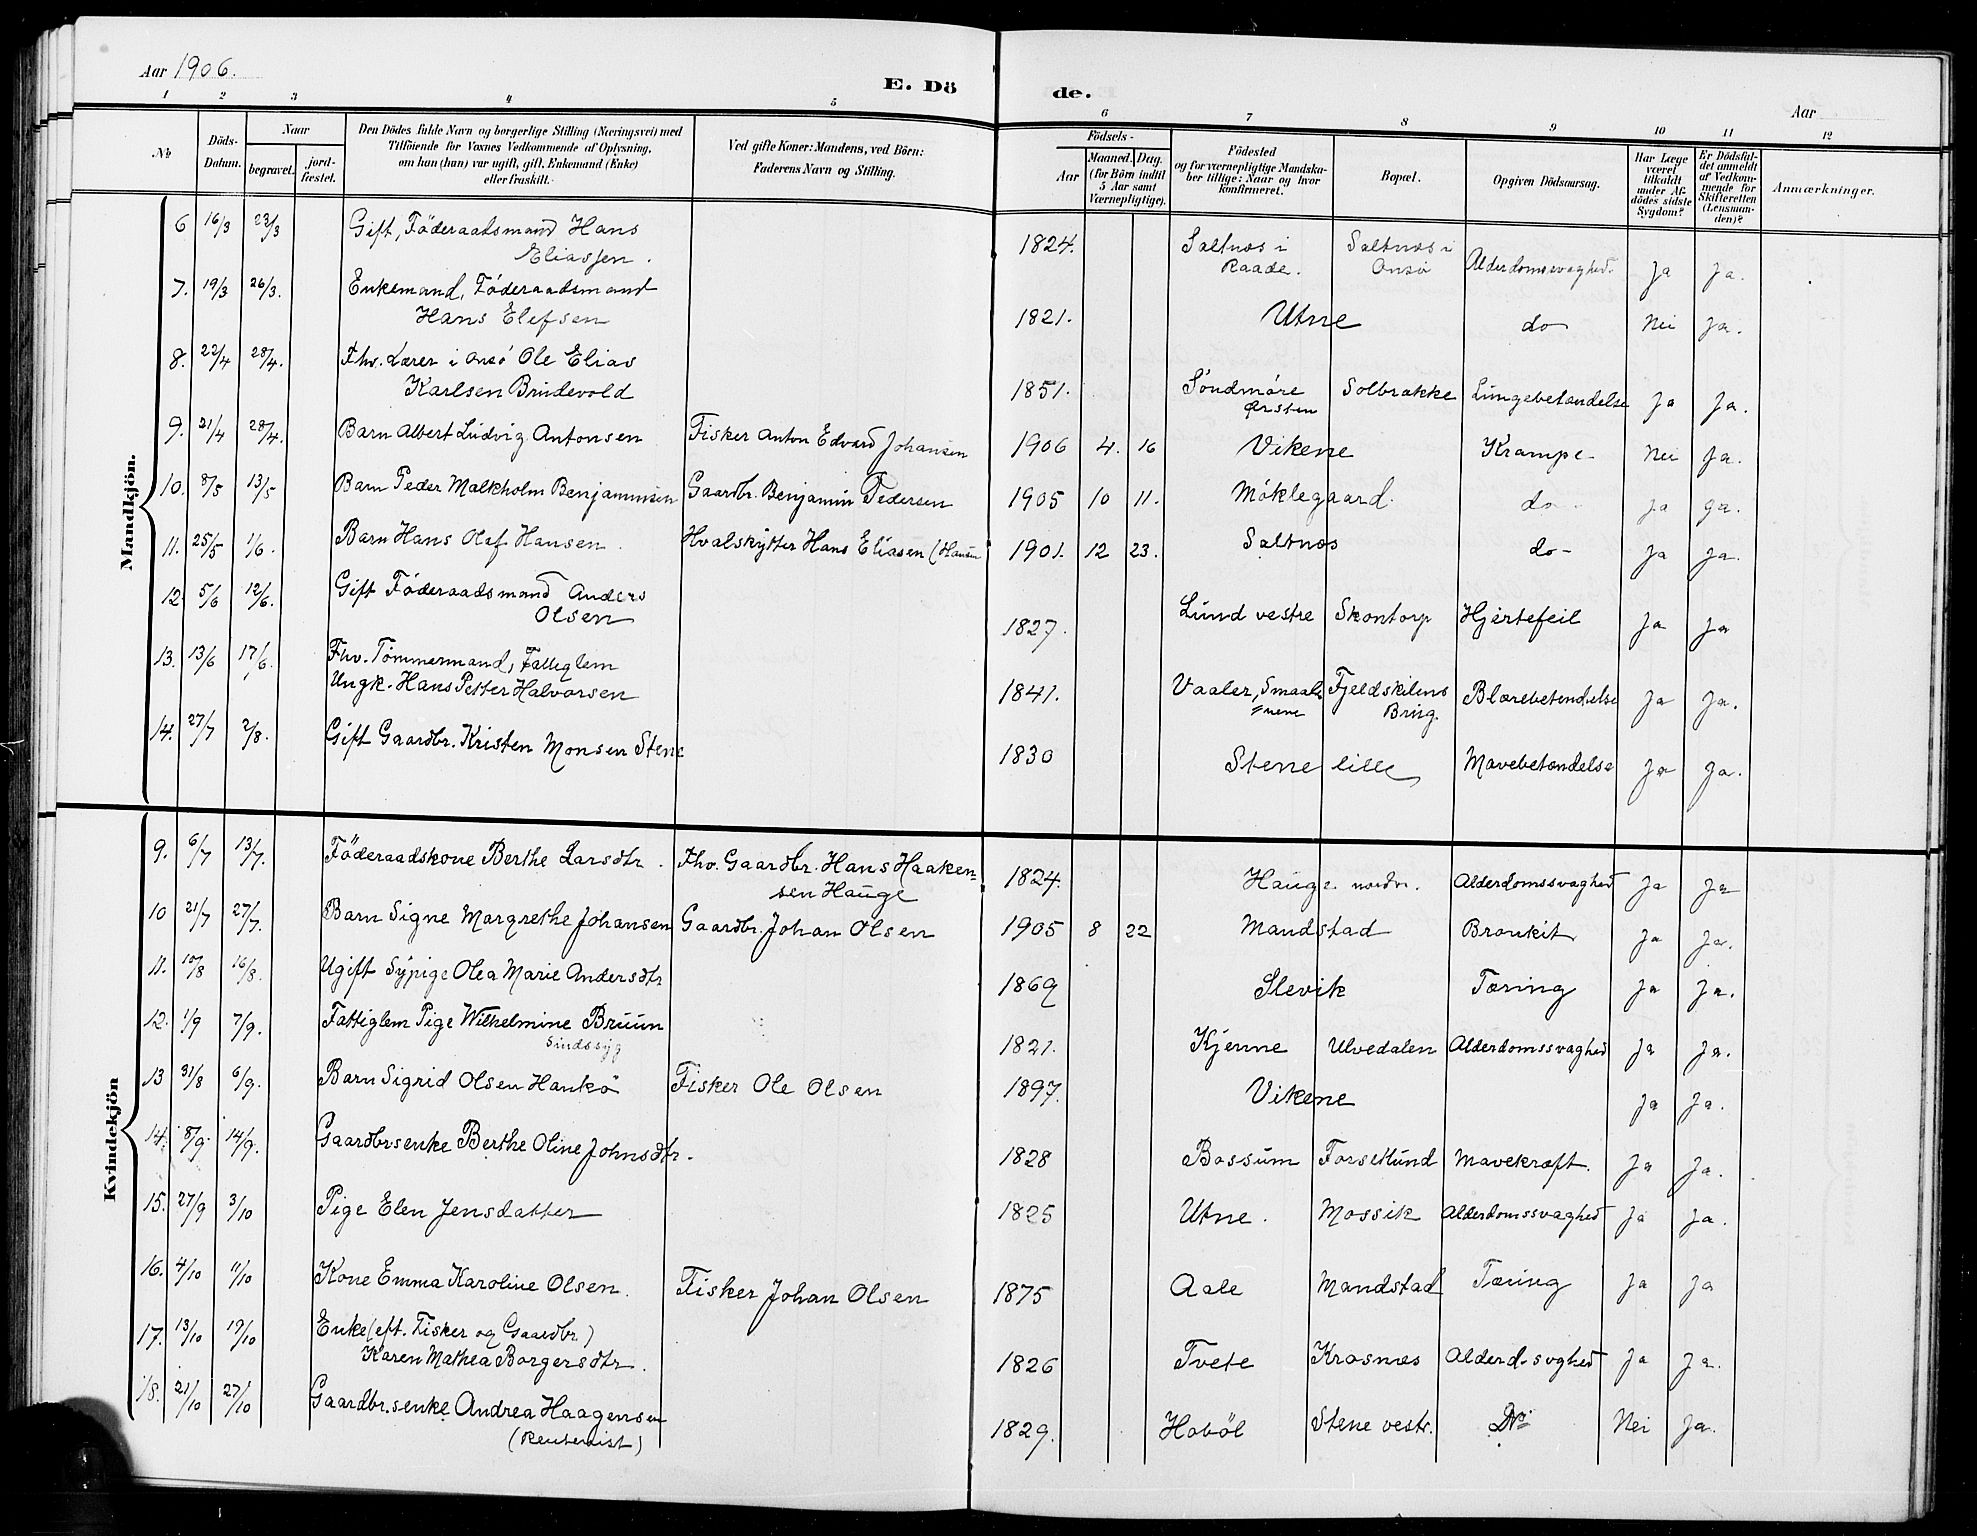 Aar 1906.
E. Dö de.
Aar
1 2 3 4 5 6 7 8 9 10 11 12
No
Döds-Datum.
Naar
begravet.
jord-fæstet.
Den Dödes fulde Navn og borgerlige Stilling (Næringsvei) med
Tilföiende for Voxnes Vedkommende af Oplysning,
om hun (han) var ugift, gift, Enkemand (Enke)
eller fraskilt.
Ved gifte Koner: Mandens, ved Börn:
Faderens Navn og Stilling.
Födsels-
Aar
Maaned. Dag.
(for Börn indtil
5 Aar samt
Værnepligtige).
Födested
og for værnepligtige Mandska-
ber tillige: Naar og hvor
konfirmeret.
Bopæl.
Opgiven Dödsaarsag.
Har Læge
været
tilkaldt
under Af-
dödes sidste
Sygdom?
Er Dödsfal-
det anmeldt
af Vedkom-
mende for
Skifteretten
(Lensman-
den)?
Anmærkninger.
Mandkjön.
6 16/3 23/3 Gift, Föderaadsmand Hans
Eliassen. 1824. Saltnæs i Raade. Saltnæs i Onsø Alderdomssvaghed. Ja Ja.
7. 19/3 26/3. Enkemand, Föderaadsmand
Hans Elefsen 1821. Utne do Nei Ja.
8. 22/4 28/4. Fhv. Lærer i Onsö Ole Elias
Karlsen Brudevold 1851. Söndmöre Ørsten Solbrække Lungebetændelse Ja Ja.
9. 21/4 28/4. Barn Albert Ludvig Antonsen Fisker Anton Edvard Johansen 1906 4. 16 Vikene Krampe Nei Ja.
10. 8/5 13/5 Barn Peder Malkholm Benjaminsen Gaardbr. Benjamin Pedersen 1905 10 11. Möklegaard. do Ja Ja.
11. 25/5 1/6. Barn Hans Olaf Hansen. Hvalskytter Hans Eliasen (Hansen 1901. 12 23. Saltnæs do- Ja Ja.
12. 5/6 12/6. Gift Föderaadsmand Anders
Olsen 1827. Lund vestre Skontorp Hjertefeil Ja Ja
13. 13/6 17/6. Fhv. Tömmermand, Fattiglem
Ungk. Hans Petter Halvorsen 1841. Vaaler, Smaale=nene Fjeldskilens Brug. Blærebetændelse Ja Ja.
14. 27/7 2/8. Gift Gaardbr. Kristen Monsen Stene 1830 Stene lille Mavebetændelse Ja Ja.
Kvindekjön
9. 6/7 13/7. Föderaadskone Berthe Larsdtr. Fhv. Gaardbr. Hans Haaken=
sen Hauge 1824. Hauge nordre. Alderdomssvaghed Ja Ja
10 21/7 27/7. Barn Signe Margrethe Johansen Gaardbr. Johan Olsen 1905 8 22 Mandstad Bronkit Ja Ja.
11. 10/8 16/8. Ugift Sypige Olea Marie Andersdtr 1869 Slevik Tæring Ja Ja.
12. 1/9 7/9. Fattiglem Pige Wilhelmine Bruun
Sindssyg 1821. Kjenne Ulvedalen Alderdomssvaghed Ja Ja.
13 31/8 6/9. Barn Sigrid Olsen Hankö Fisker Ole Olsen 1897. Vikene Ja Ja.
14. 8/9 14/9. Gaardbrsenke Berthe Oline Johnsdtr. 1828 Bossum Forsetlund Mavekræft. Ja Ja.
15. 27/9 3/10 Pige Elen Jensdatter 1825 Utne. Mossik Alderdomssvaghed Ja Ja.
16. 4/10 11/10 Kone Emma Karoline Olsen. Fisker Johan Olsen 1875 Aale Mandstad Tæring Ja Ja
17. 13/10 19/10 Enke (eft. Fisker og Gaardbr.)
Karen Mathea Borgersdtr. 1826 Tvete Krosnæs Alderd.svghed Ja Ja.
18. 21/10 27/10 Gaardbr.senke Andrea Haagensen
(Reutenist) 1829. Hoböl Stene vestr. Do Nei Ja.